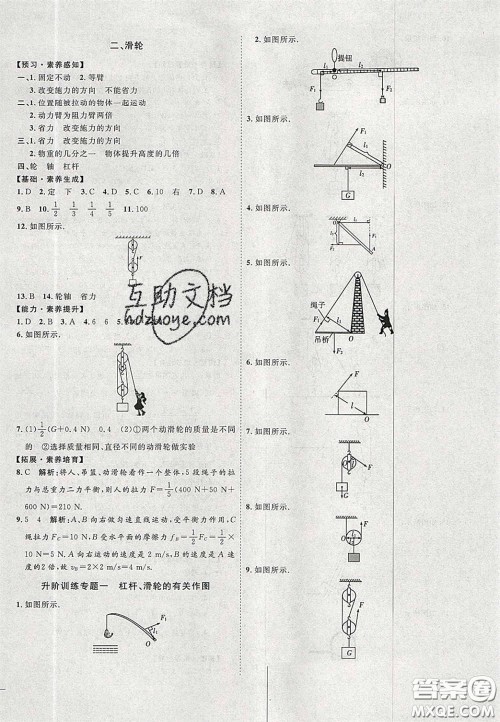 二、滑轮
【预习·素养感知】
一、1. 固定不动 2. 等臂
3. 改变施力的方向 不能省力
二、1. 位置随被拉动的物体一起运动
2. 动力臂为阻力臂两倍
3. 省力 改变施力的方向
三、1. 省力 改变施力的方向
2. 物重的几分之一 物体提升高度的几倍
四、轮 轴 杠杆
【基础·素养生成】
1. D 2. 定 下 3. C 4. D 5. C 6. 10 右 7. D 8. A
9. B 10. 1/2 1/3 1/4 1/5 11. 100
12. 如图所示.
F
13. B 14. 轮轴 省力
【能力·素养提升】
1. D 2. B 3. A 4. 6 6
6. 如图所示.
7. (1) 1/2(G+0.4 N) (2)①两个动滑轮的质量是不同
的 ②选择质量相同、直径不同的动滑轮做实验
【拓展·素养培育】
8. C 解析:将人、吊篮、动滑轮看作一个整体,5段绳子的拉
力与总重力二力平衡,则人的拉力F=1/5×(400 N+50 N
+600 N)=210 N.
9. 5 4 解析:A向右做匀速直线运动,受平衡力的作用,C
绳拉力F=10 N,则B受水平桌面的摩擦力f=1/2F=1/2×
10 N=5 N.A向右运动的速度是2 m/s,则B向右运动的
速度是4 m/s.
升阶训练专题一 杠杆、滑轮的有关作图
1. 如图所示.
2. 如图所示.
提钮
l1 l2
F1 F2
3. 如图所示.
F l1 O l2 G
4. 如图所示.
O A
5. 如图所示.
绳子 l1 l2 O 吊桥 F2
6. 如图所示.
F l O
7. 如图所示.
F G
8. 如图所示.
F
9. 如图所示.
F G
互助文档
hdzuoye.com
答案圈
MXQE.COM